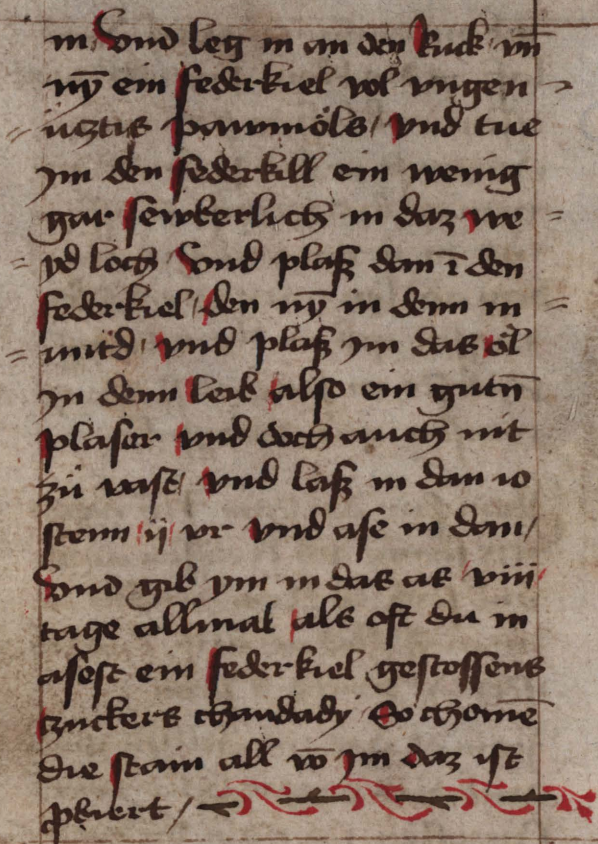 in Vnd leg in an den Ruck vn̄
nÿ ein federkiel vol vngen
ücztis pawmöls / vnd tue
jm den federkill ein wenig
gar sewberlich in daz we
yd loch Vnd plasz dan ī den
federkiel / den nÿ in denn m
mitd / vnd plasz jm das öl
jn denn leib also ein gutn̄
plaser vnd doch auch nit
zü vast / vnd lasz in dan 10
stenn ij vr vnd ase in dan /
Vnd gib ym in das as viij
tage allmal als oft du in
asest ein federkiel gestossens
tzuckers chandady So chomē
die stain all vō jm daz ist
pbiert /